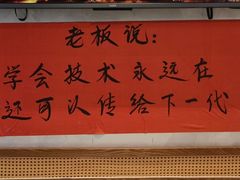 老板说：
学会技术永远在
还可以传给下一代